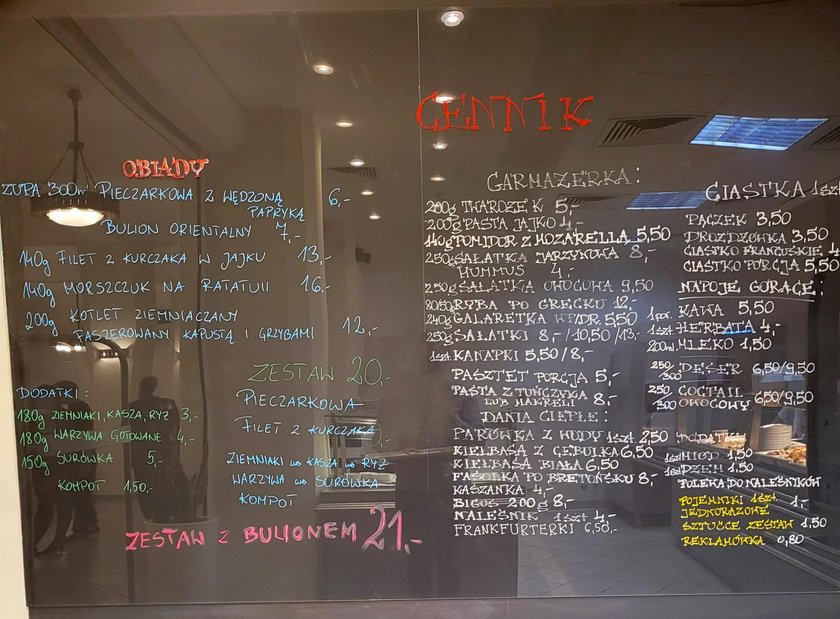 CENNIK
OBIADY
ZUPA 300ml PIECZARKOWA Z WĘDZONĄ 6,-
PAPRYKĄ
BULION ORIENTALNY 7,-
140g FILET Z KURCZAKA W JAJKU 13,-
140g MORSZCZUK NA RATATUII 16.-
200g KOTLET ZIEMNIACZANY
FASZEROWANY KAPUSTĄ I GRZYBAMI 12,-
DODATKI:
180g ZIEMNIAKI, KASZA, RYŻ 3,-
180g WARZYWA GOTOWANE 4,-
150g SURÓWKA 5,-
KOMPOT 1,50,-
ZESTAW 20,-
PIECZARKOWA
FILET Z KURCZAKA
ZIEMNIAKI lub KASZA lub RYŻ
WARZYWA lub SURÓWKA
KOMPOT
ZESTAW Z BULIONEM 21.-
GARMAŻERKA:
200g TWAROŻEK 5,-
200g PASTA JAJKO 4,-
140g POMIDOR Z MOZARELLA 5,50
250g SAŁATKA JARZYNOWA 8,-
HUMMUS 4,-
250g SAŁATKA OWOCOWA 9,50
RYBA PO GRECKU 12,-
240g GALARETKA WP/DR. 5,50
250g SAŁATKI 8,-/10,50/13,-
1szt. KANAPKI 5,50/8,-
PASZTET PORCJA 5,-
PASTA Z TUŃCZYKA
LUB MAKRELI 8,-
DANIA CIEPŁE:
PARÓWKA Z WODY 1szt. 2,50
KIEŁBASA Z CEBULKĄ 6,50
KIEŁBASA BIAŁA 6,50
FASOLKA PO BRETOŃSKU 8,-
KASZANKA 4,-
BIGOS 200g 8,-
NALEŚNIK 1szt 4,-
FRANKFURTERKI 6,50,-
CIASTKA 1szt
PĄCZEK 3,50
DROŻDŻÓWKA 3,50
CIASTKO FRANCUSKIE 4
CIASTKO PORCJA 5,50
NAPOJE GORĄCE:
1por. KAWA 5,50
1szt. HERBATA 4,-
200ml MLEKO 1,50
250/300 DESER 6,50/9,50
250/300 COCTAIL
OWOCOWY 6,50/9,50
DODATKI
MIÓD 1,50
DŻEM 1,50
POLEWA DO NALEŚNIKÓW
POJEMNIKI 1szt.
JEDNORAZOWE 1,-
SZTUĆCE ZESTAW 1,50
REKLAMÓWKA 0,80